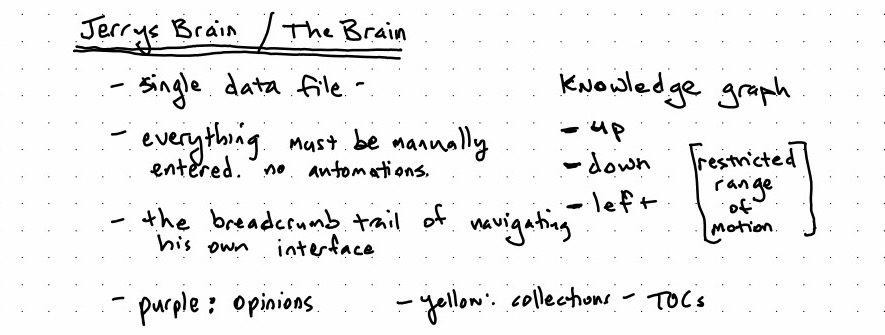 Jerrys Brain / The Brain
- single data file -
- everything must be manually
entered. no automations.
- the breadcrumb trail of navigating
his own interface
- purple: opinions - yellow: collections - TOCs
Knowledge graph
- up
- down
- left
[restricted
range
of
motion]